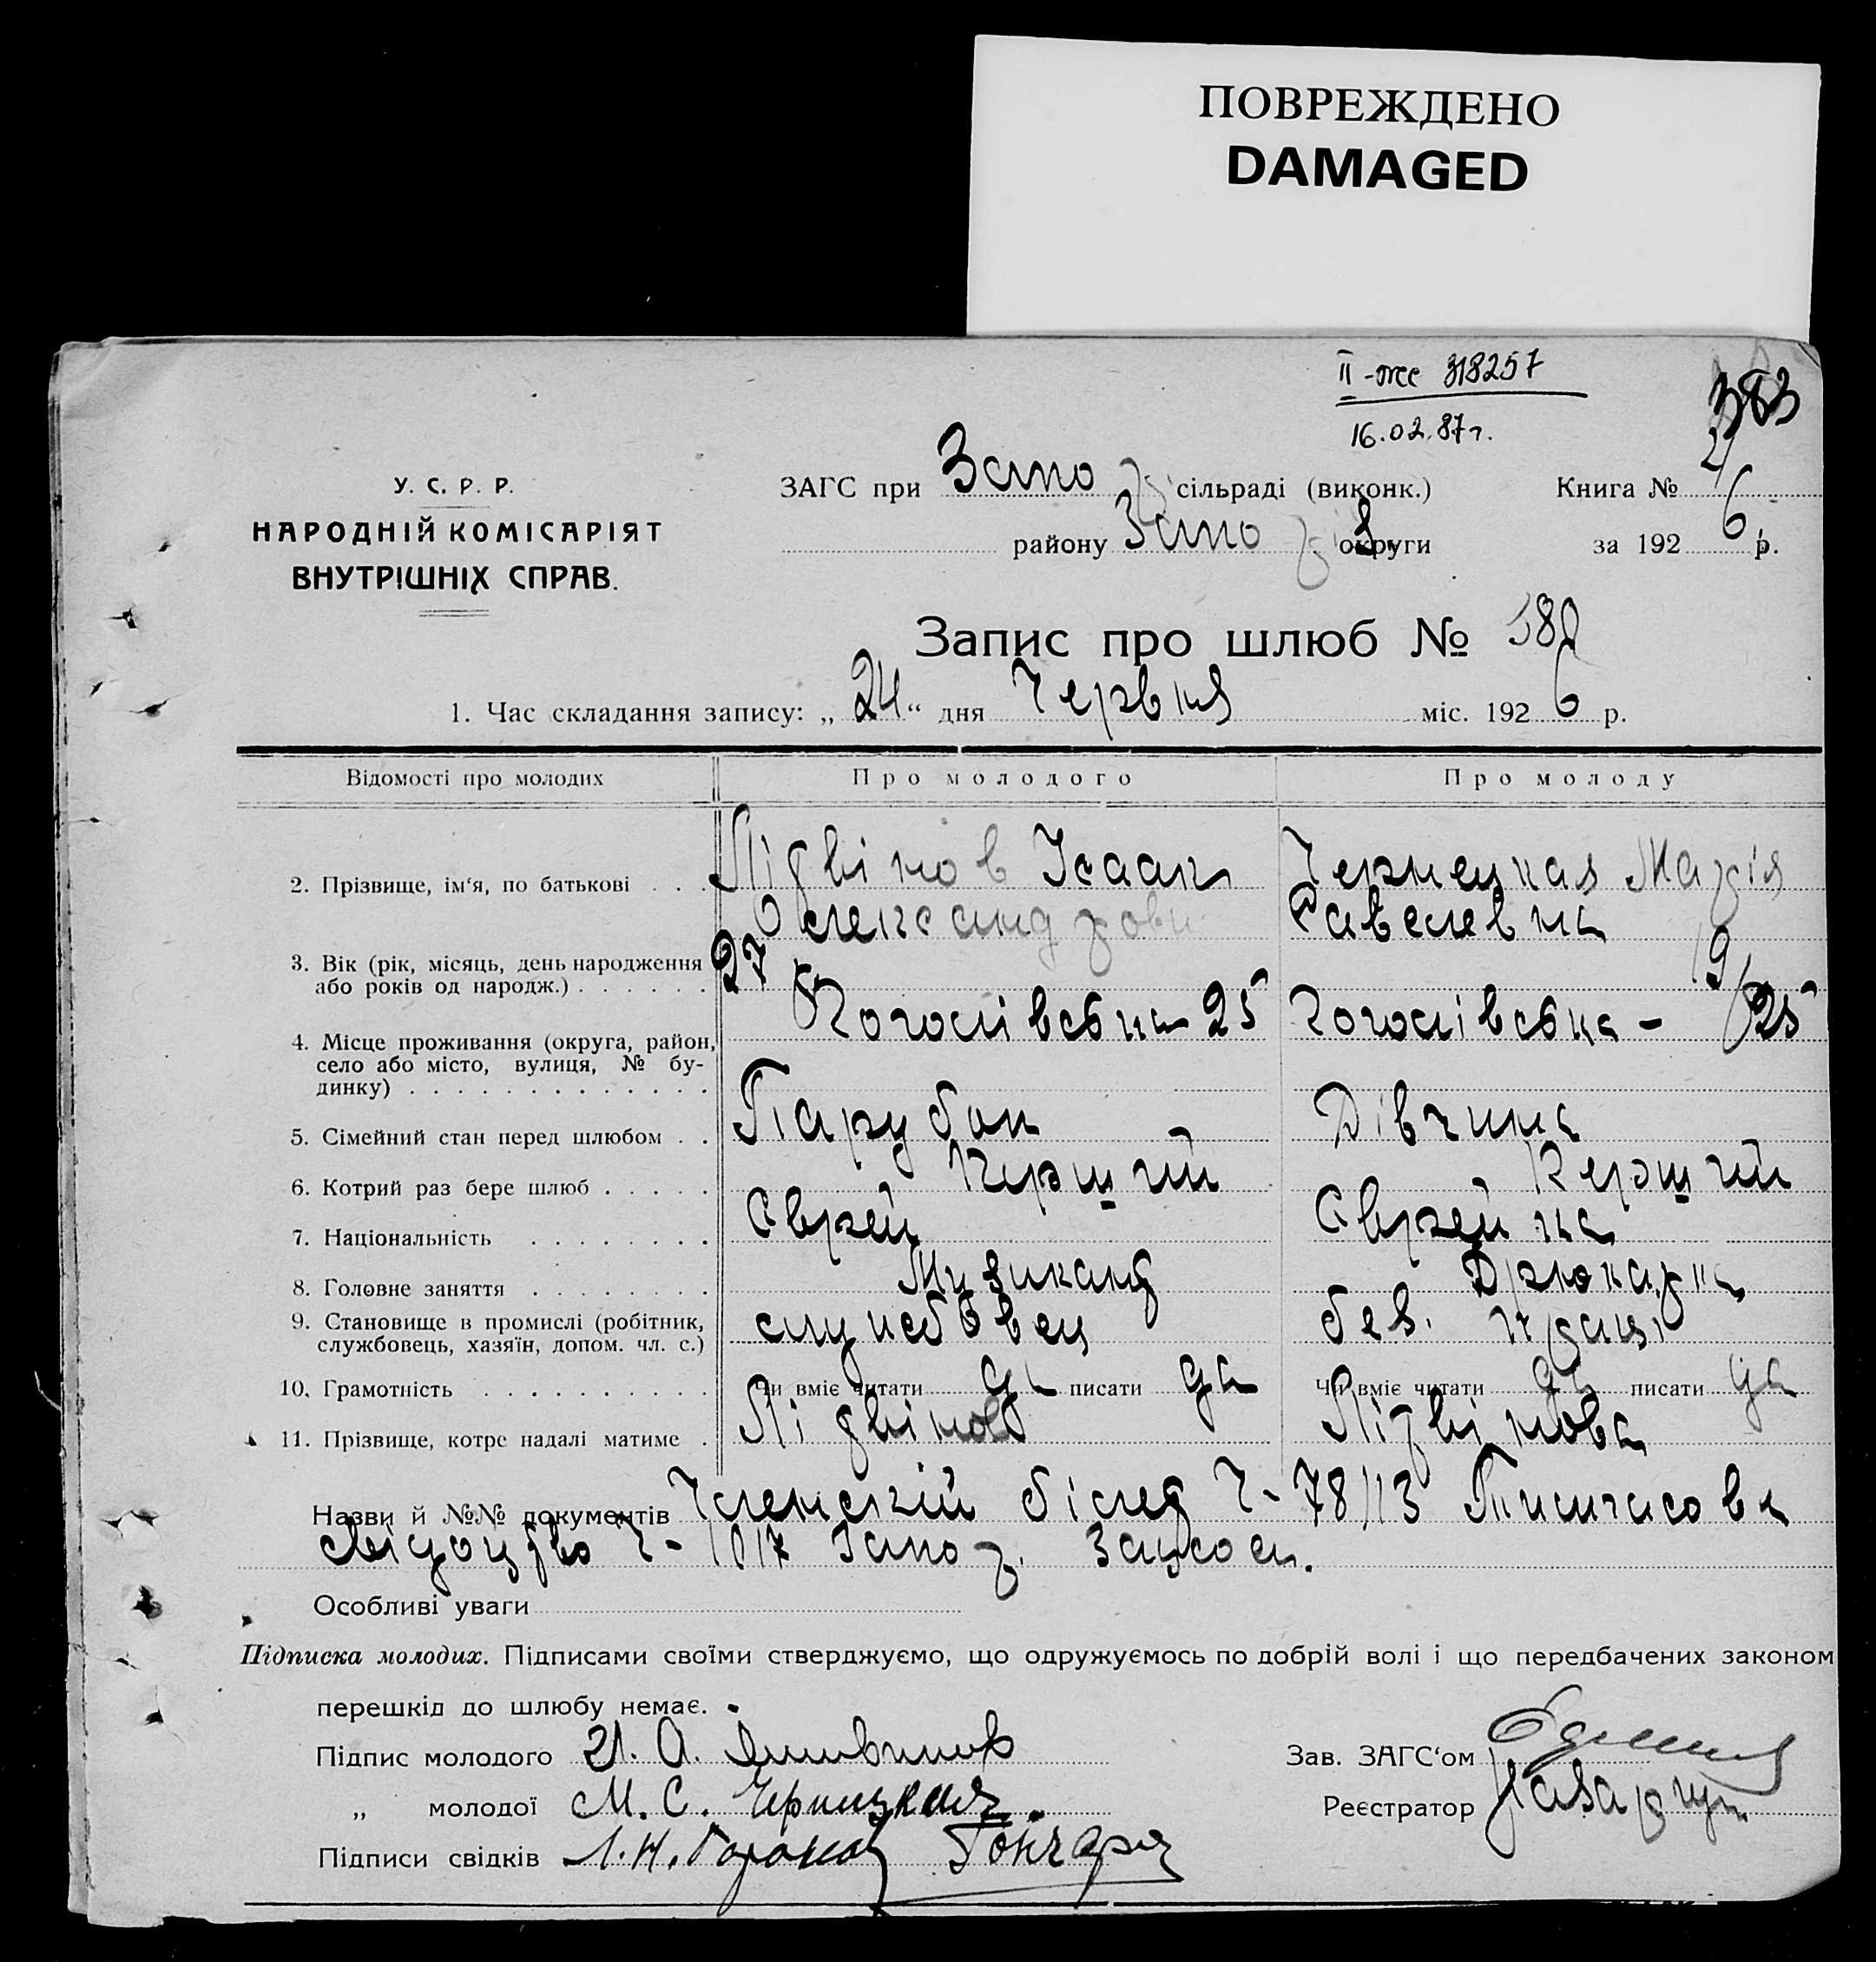 ПОВРЕЖДЕНО
DAMAGED
II-же 318257
16.02.87г.
383
У. С. Р. Р.
НАРОДНІЙ КОМІСАРІЯТ
ВНУТРІШНІХ СПРАВ.
ЗАГС при Запо сільраді (виконк.) Книга №
району Запо округи за 192 6 р.
Запис про шлюб №
1. Час складання запису: „ 24 “ дня Червня міс. 192 6 р.
Відомості про молодих Про молодого Про молоду
2. Прізвище, ім‘я, по батькові . . . Літвінов Ісаак Чернецкая Марія
Олександрови Савелевна
3. Вік (рік, місяць, день народження 27 19
або років од народж.) . . . . . .
4. Місце проживання (округа, район, Гоголівська 25 Гоголівська - 25
село або місто, вулиця, № бу-
динку) . . . . . . . . . . . . .
5. Сімейний стан перед шлюбом . . Парубок Дівчина
6. Котрий раз бере шлюб . . . . . Перший Перший
7. Національність . . . . . . . . Єврей Єврейка
8. Головне заняття . . . . . . . . Музикант Друкарка
9. Становище в промислі (робітник, службовец без. праці
службовець, хазяїн, допом. чл. с.)
10. Грамотність . . . . . . . . . . Чи вміє читати да писати да Чи вміє читати да писати да
11. Прізвище, котре надалі матиме . Літвінов Літвінова
Назви й №№ документів Членский білет Ч- 78/13 Тимчасова
свідоцтво Ч- 1017 Запор.
Особливі уваги
Підписка молодих. Підписами своїми стверджуємо, що одружуємось по добрій волі і що передбачених законом
перешкід до шлюбу немає.
Підпис молодого И. А. Литвинов Зав. ЗАГС‘ом
„ молодої М. С. Чернецкая. Реєстратор
Підписи свідків Л. Н. Гончар